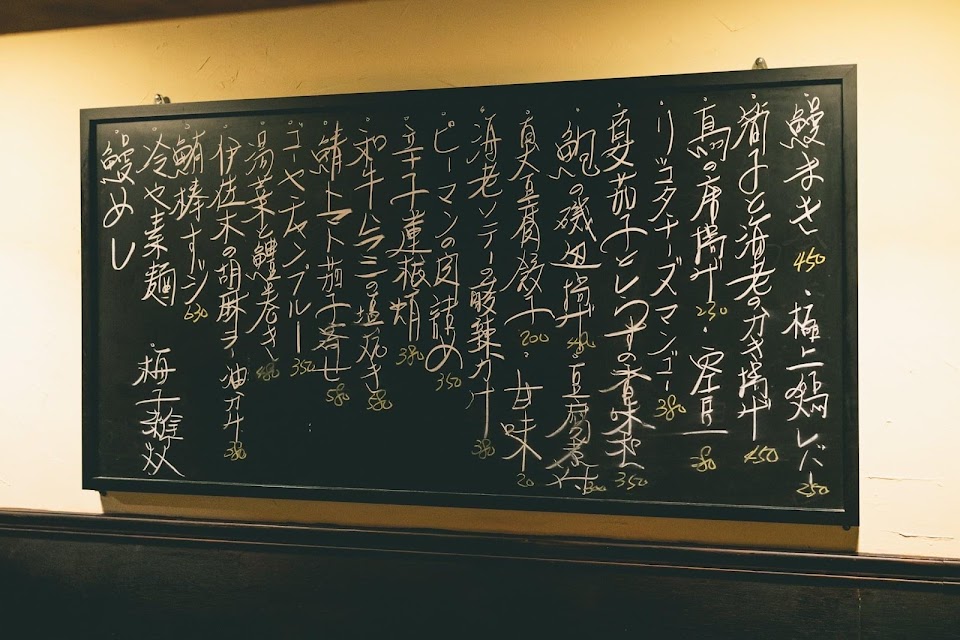 鰻まき 450 ・極上鶏レバー 250
海老のかき揚げ 450
唐揚げ 230
リコッタチーズマンゴー 380
夏茄子とレンズの香味 350
鮑の磯辺揚げ 480 豆腐
200 ・甘味 20
海老ソテーの酸辣ガケ 380
ピーマンの肉詰め 350
辛子蓮根 380
和牛ハラミの塩灰き 580
鯖トマト茄子寄せ 580
ゴーヤチャンプルー 350
湯葉と鱧巻き 480
伊佐木の胡麻ラー油ガケ 380
鯖棒すッシ 630
冷や素麺 梅干雑炊
鰻めし